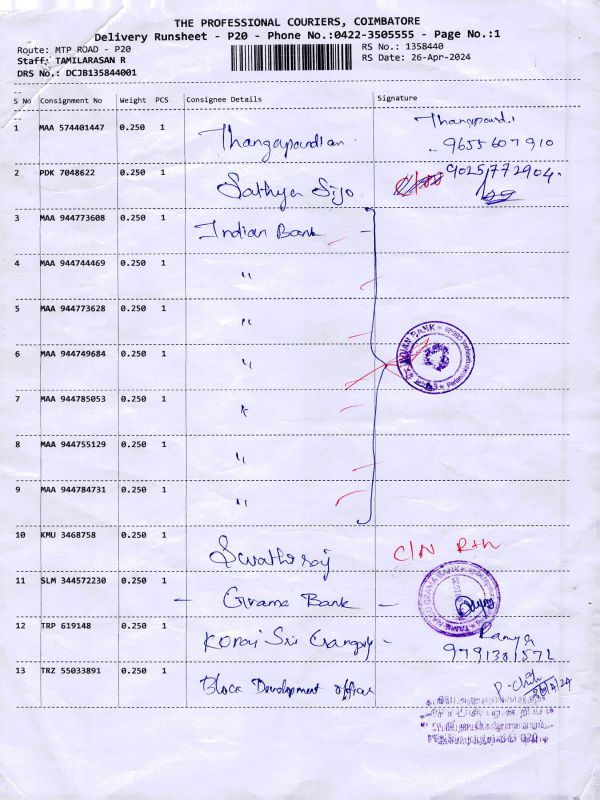 THE PROFESSIONAL COURIERS, COIMBATORE
Delivery Runsheet - P20 - Phone No.:0422-3505555 - Page No.:1
Route: MTP ROAD - P20
RS No.: 1358440
Staff: TAMILARASAN R
RS Date: 26-Apr-2024
DRS No.: DCJB135844001
S No Consignment No Weight PCS Consignee Details Signature
1 MAA 574401447 0.250 1 Thangapandian Thangapandi
9655607910
2 PDK 7048622 0.250 1 Sathya Sijo 90251772904
3 MAA 944773608 0.250 1 Indian Bank
4 MAA 944744469 0.250 1 "
5 MAA 944773628 0.250 1 "
6 MAA 944749684 0.250 1 "
INDIAN BANK
7 MAA 944785053 0.250 1 "
8 MAA 944755129 0.250 1 "
9 MAA 944784731 0.250 1 "
10 KMU 3468758 0.250 1 Swathiraj C/N Rtn
11 SLM 344572230 0.250 1 - Grama Bank -
TAMIL NADU GRAMA BANK
12 TRP 619148 0.250 1 Ramya
13 TRZ 55033891 0.250 1 Block Development officer